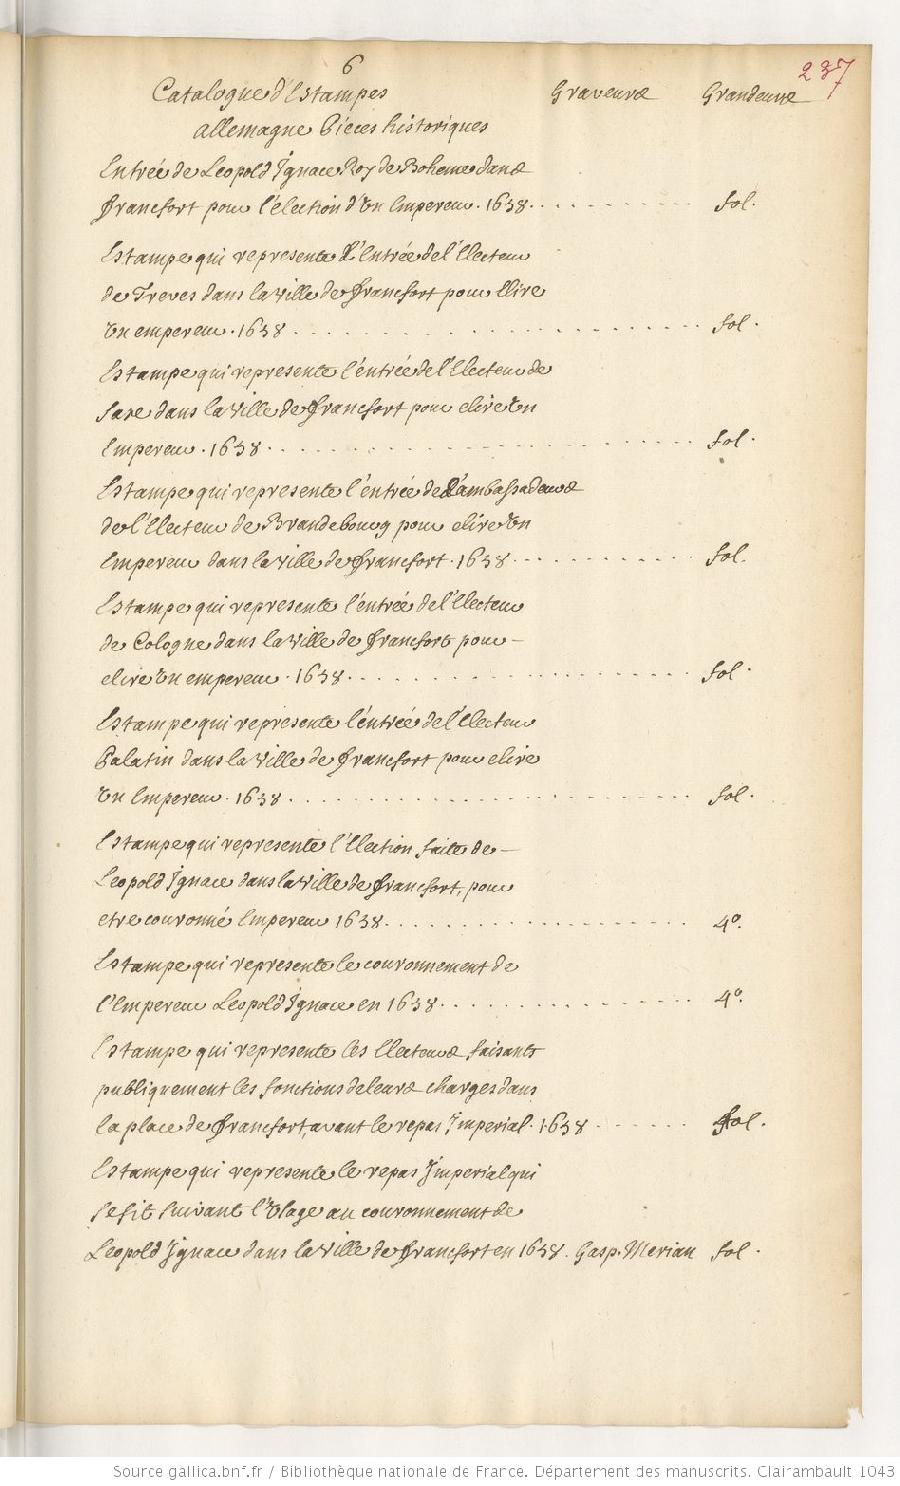 6
237
Catalogue d'Estampes Graveurs Grandeurs
allemagne Pieces historiques
Entrée de Leopold Ignace Roy de Boheme dans
francfort pour l'élection d'Un Empereur. 1658. . . . . . . . . . . fol.
Estampe qui represente L'Entrée de l'Electeur
de Treves dans la Ville de francfort pour Elire
Un empereur. 1658 . . . . . . . . . . . . . . . . . . . . . . fol.
Estampe qui represente l'entrée de l'Electeur de
Saxe dans la Ville de francfort pour elire Un
Empereur. 1658. . . . . . . . . . . . . . . . . . . . . . . fol.
Estampe qui represente l'entrée de L'ambassadeurs
de l'Electeur de Brandebourg pour elire Un
Empereur dans la Ville de francfort. 1658. . . . . . . . . . . fol.
Estampe qui represente l'entrée de l'Electeur
de Cologne dans la Ville de francfort pour –
elire Un empereur. 1658. . . . . . . . . . . . . . . . . . . fol.
Estampe qui represente l'entrée de l'Electeur
Palatin dans la Ville de francfort pour elire
Un Empereur. 1658 . . . . . . . . . . . . . . . . . . . . . fol.
Estampe qui represente l'Election faite de –
Leopold Ignace dans la Ville de francfort, pour
etre couronné Empereur 1658. . . . . . . . . . . . . . . . . . 4º.
Estampe qui represente le couronnement de
l'Empereur Leopold Ignace en 1658. . . . . . . . . . . . . . . 4º.
Estampe qui represente les Electeurs faisants
publiquement les fonctions de leurs charges dans
la place de francfort, avant le repas Imperial. 1658 . . . . . . . fol.
Estampe qui represente le repas Imperial qui
se fit suivant l'Usage au couronnement de
Leopold Ignace dans la Ville de francfort en 1658. Gasp. Merian fol.
Source gallica.bnf.fr / Bibliothèque nationale de France. Département des manuscrits. Clairambault 1043